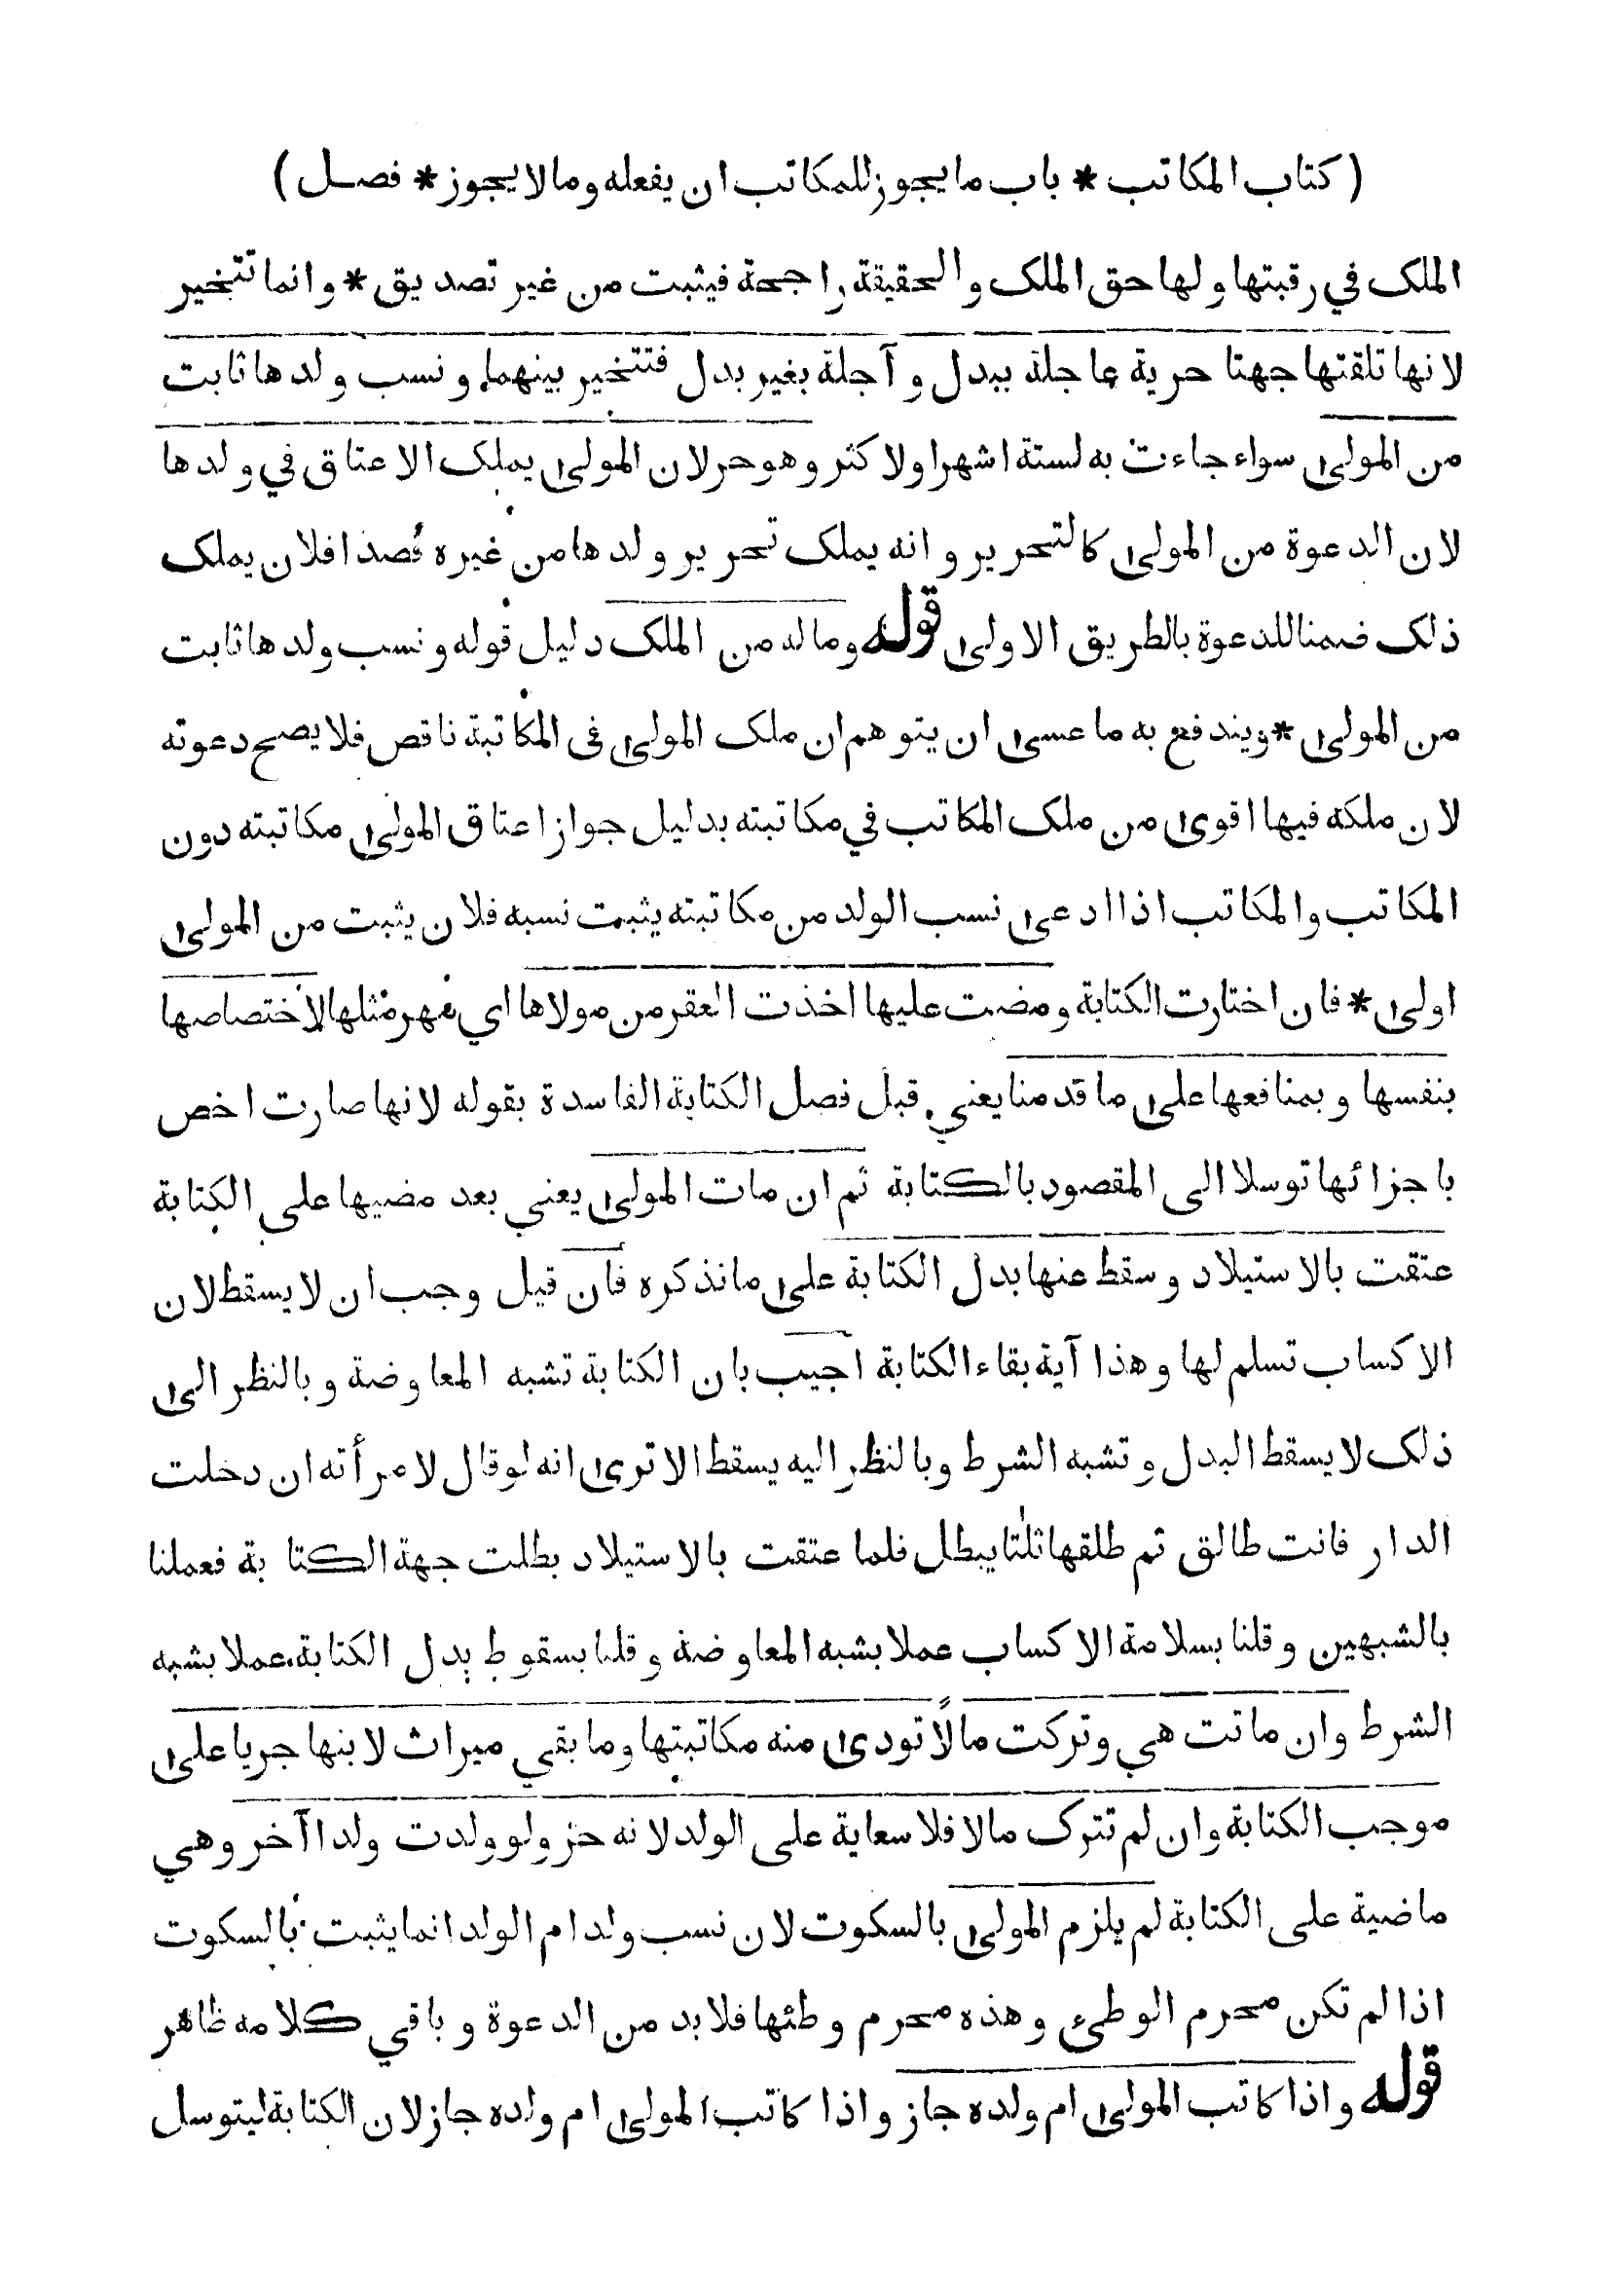 ( كتاب المكاتب * باب ما يجوز للمكاتب ان يفعله وما لا يجوز * فصل )
الملك في رقبتها ولها حق الملك والحقيقة راجحة فيثبت من غير تصديق * وانما تتخير
لانها تلقتها جهتا حرية عاجلة ببدل و آجلة بغير بدل فتتخير بينهما ونسب ولدها ثابت
من المولى سواء جاءت به لستة اشهر اولاكثر وهو حر لان المولى يملك الاعتاق في ولدها
لان الدعوة من المولى كالتحرير وانه يملك تحرير ولدها من غيره قصدا فلان يملك
ذلك ضمنا للدعوة بالطريق الاولى قوله وماله من الملك دليل قوله ونسب ولدها ثابت
من المولى * ويندفع به ما عسى ان يتوهم ان ملك المولى فى المكاتبة ناقص فلا يصح دعوته
لان ملكه فيها اقوى من ملك المكاتب في مكاتبته بدليل جواز اعتاق المولى مكاتبته دون
المكاتب والمكاتب اذا ادعى نسب الولد من مكاتبته يثبت نسبه فلان يثبت من المولى
اولى * فان اختارت الكتابة ومضت عليها اخذت العقر من مولاها اي مهر مثلها لاختصاصها
بنفسها وبمنافعها على ما قدمنا يعني قبل فصل الكتابة الفاسدة بقوله لانها صارت اخص
باجزائها توسلا الى المقصود بالكتابة ثم ان مات المولى يعني بعد مضيها على الكتابة
عتقت بالاستيلاد وسقط عنها بدل الكتابة على ما نذكره فان قيل وجب ان لا يسقط لان
الاكساب تسلم لها وهذا آية بقاء الكتابة اجيب بان الكتابة تشبه المعاوضة وبالنظر الى
ذلك لا يسقط البدل وتشبه الشرط وبالنظر اليه يسقط الا ترى انه لو قال لامرأته ان دخلت
الدار فانت طالق ثم طلقها ثلٰثا يبطل فلما عتقت بالاستيلاد بطلت جهة الكتابة فعملنا
بالشبهين وقلنا بسلامة الاكساب عملا بشبه المعاوضة وقلنا بسقوط بدل الكتابة عملا بشبه
الشرط وان ماتت هي وتركت مالًا تودى منه مكاتبتها وما بقي ميراث لابنها جريا على
موجب الكتابة وان لم تترك مالا فلا سعاية على الولد لانه حر ولو ولدت ولدا آخر وهي
ماضية على الكتابة لم يلزم المولى بالسكوت لان نسب ولد ام الولد انما يثبت بالسكوت
اذا لم تكن محرم الوطئ وهذه محرم وطئها فلا بد من الدعوة وباقي كلامه ظاهر
قوله واذا كاتب المولى ام ولده جاز واذا كاتب المولى ام ولده جاز لان الكتابة ليتوسل